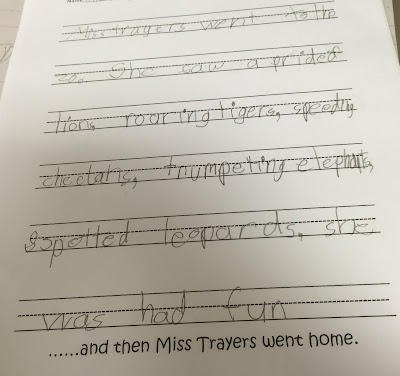 Miss Trayers went to the
zoo. She saw a pride of
lions, roaring tigers, speeding
cheetahs, trumpeting elephants,
sspotted leopards, she
was had fun
......and then Miss Trayers went home.